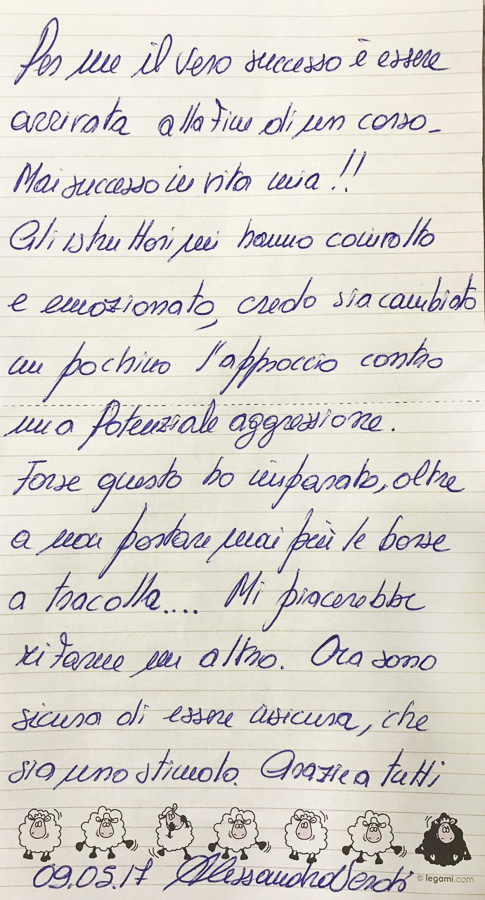 Per me il vero successo è essere
arrivata alla fine di un corso_
Mai successo in vita mia!!
Gli istruttori mi hanno coinvolto
e emozionato, credo sia cambiato
un pochino l'approccio contro
una potenziale aggressione.
Forse questo ho imparato, oltre
a non portare mai più le borse
a tracolla.... Mi piacerebbe
rifarne un altro. Ora sono
sicura di essere insicura, che
sia uno stimolo. Grazie a tutti
© legami.com
09.05.17 Alessandra